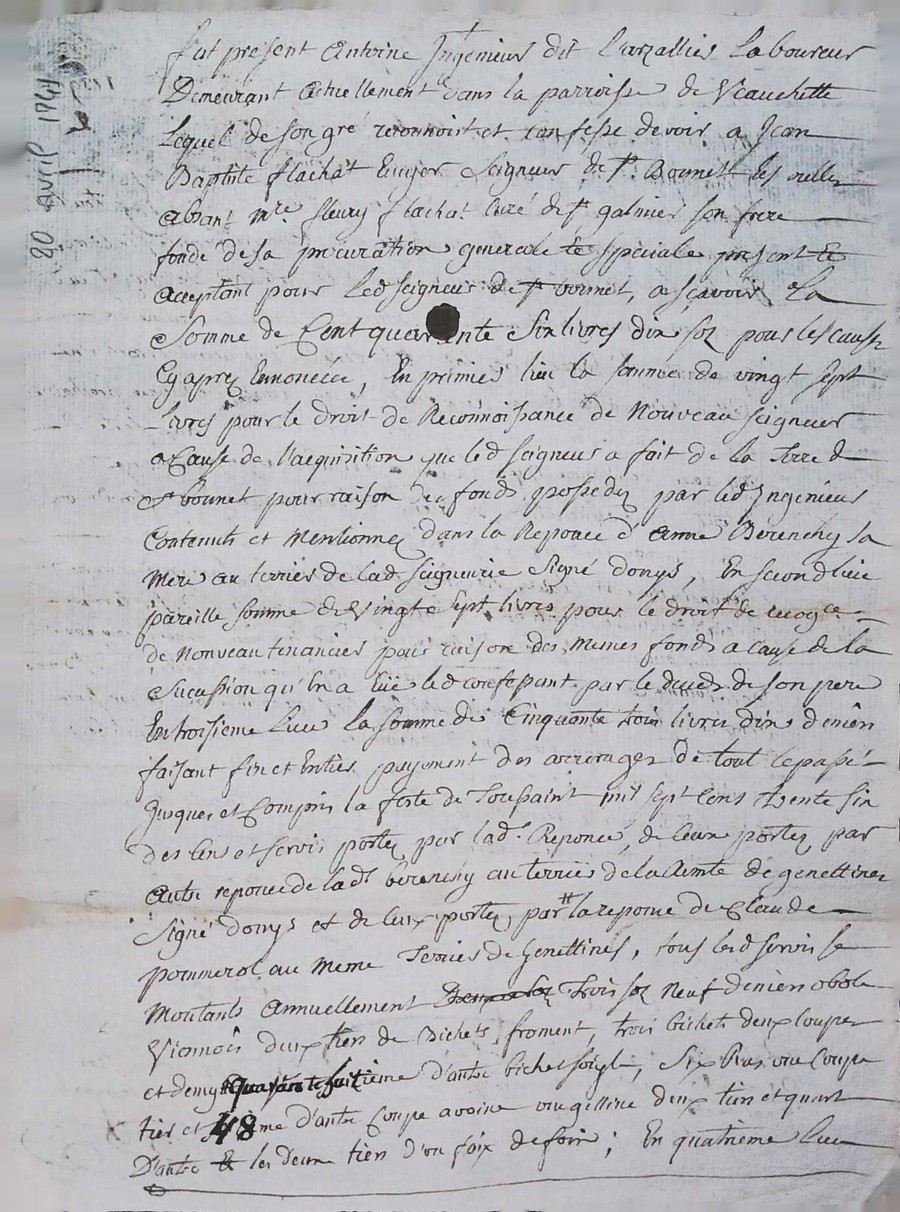 20 avril 1741
fut present Antoine Ingenieur dit Larzallier Laboureur
Demeurant actuellement dans la parroisse de Veauchette
Lequel de son gré reconnoist et confesse devoir a Jean
Baptiste flachat Ecuyer Seigneur de St. Bonnett les oulles
absant mre fleury flachat curé de St galmier son frere
fondé de sa procuration generale et speciale present et
acceptant pour led seigneur de St bonnet, a sçavoir La
Somme de Cent quarante Six livres dix sol pour les causes
Cy apres Ennoncées, En premier lieu la somme de vingt sept
Livres pour le droit de Reconnoissance de Nouveau seigneur
a Cause de l'acquisition que led seigneur a fait de la Terre de
St bonnet pour raison des fonds possedez par led Ingenieur
Contenuts et Mentionnez dans la Reponce d'anne Berenchy sa
Mere au terrier de lad seigneurie Signé donys, En second lieu
pareille somme de Vingt Sept livres pour le droit de recogce
de Nouveau tinancier pour raison des memes fonds a cause de la
Sucession qu'en a Eüe led confessant par le deceds de son pere
En troisieme Lieu la somme de Cinquante trois livres dix deniers
faisant fin et Entier payement des arrerages de tout le passé
Jusques et Compris la feste de Toussaint mil sept Cens trente Six
des Cens et servis portez par lad. Reponce, de ceux portez par
autre reponce de lad berenchy au terrier de la Rente de genettines
Signé donys et de ceux portez par la reponce de Claude
pommerol au meme Terrier de Genettines, tous lesd servis se
Montants annuellement Trois sol Neuf deniers obole
Viennois deux tiers de Bichets froment, trois bichets deux Coupes
et demy quarante huitieme d'autre bichet soigle, Six Ras une Coupe
tier et 48me d'autre Coupe avoine une gelline deux tiers et quart
D'autre et les deux tiers d'un faix de foin ; En quatrieme lieu